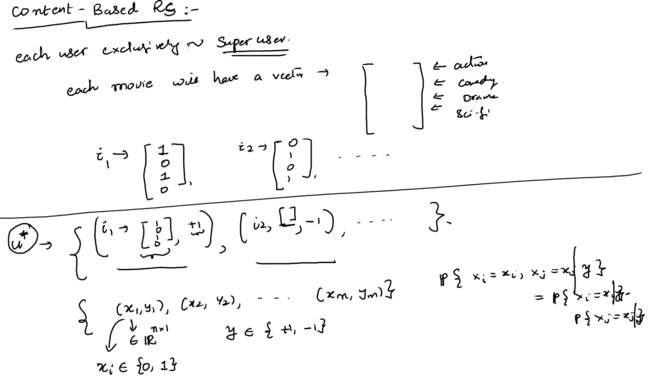 Content-Based RS:-
each user exclusively ~ Super user.
each movie will have a vector → [ ] ← action
← Comedy
← Drama
← Sci-fi
i₁ → [1 0 1 0], i2 → [0 1 0 1], . . . .
u* → { (i₁ → [1 0 1 0], +1), (i2, [ ], -1), . . . . }.
{ (x₁,y₁), (x2, y2), . . . (xm, ym) }
∈ ℝⁿˣ¹ y ∈ { +1, -1}
xi ∈ {0, 1}
P{ xi = xi, xj = xj | y }
= P{ xi = xi|y}.
P{ xj = xj|y}